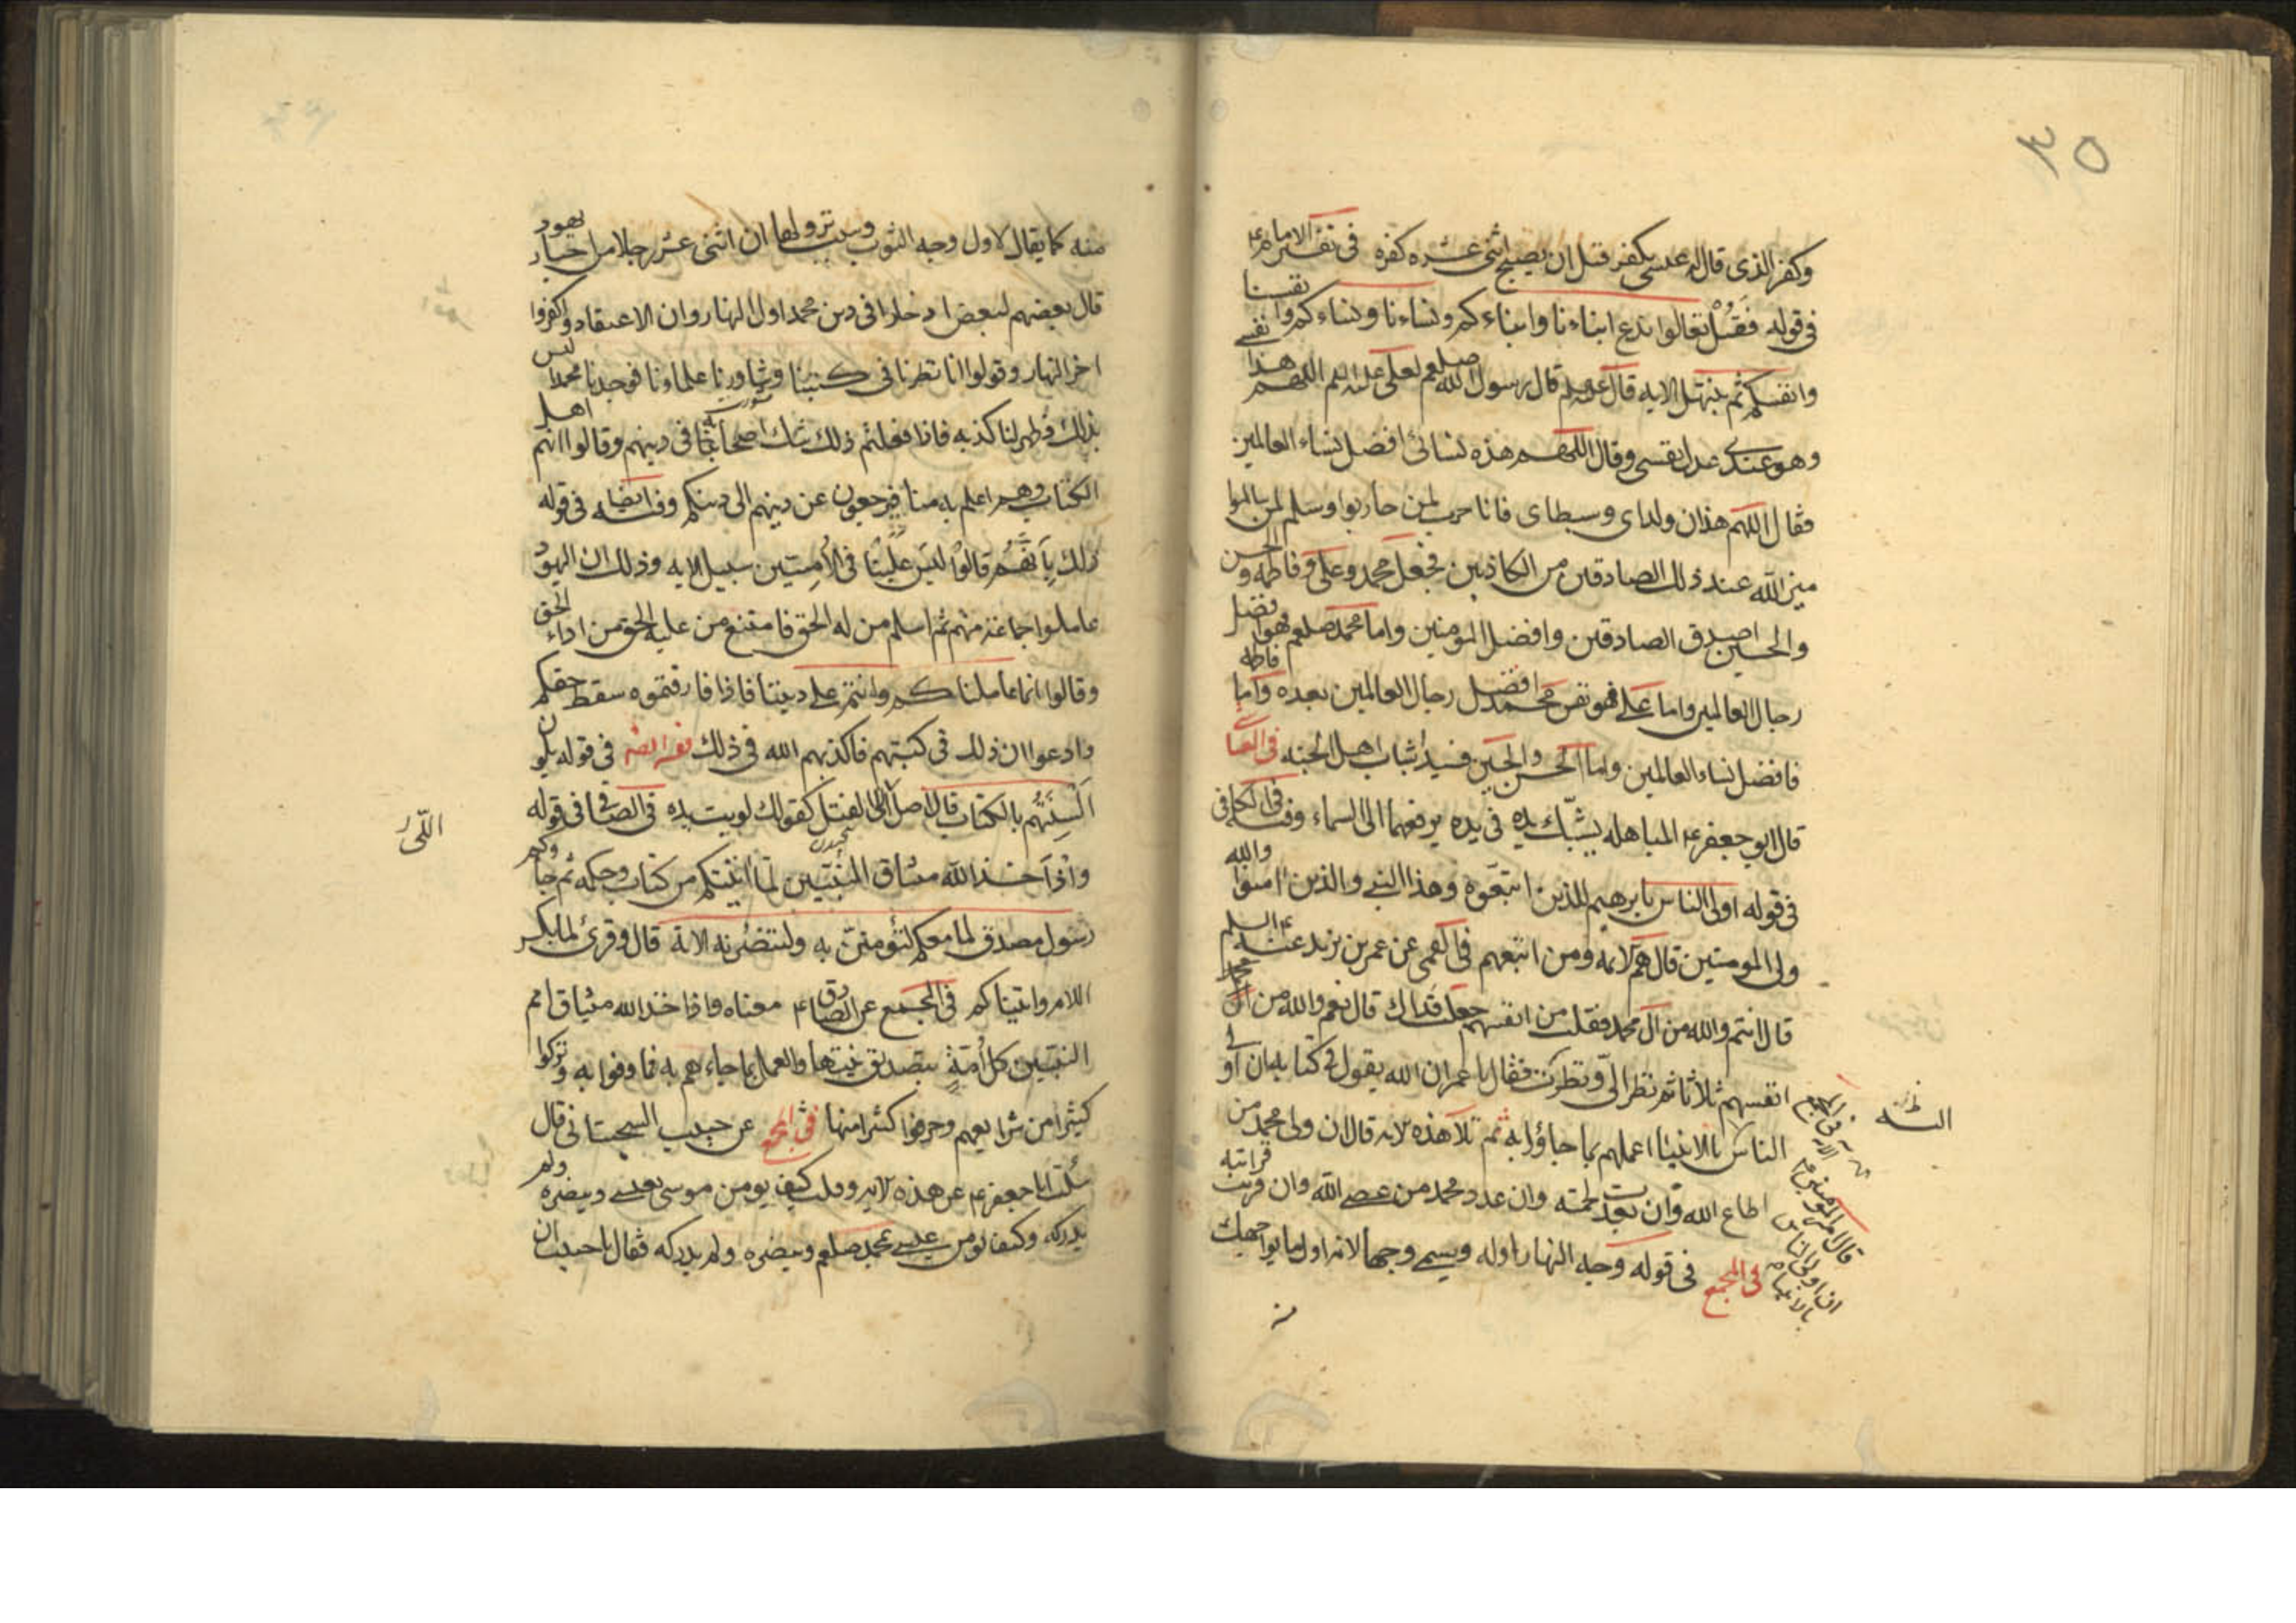 ٣٥
وكفر الذى قال له عيسى يكفر قبل ان يصبح اثنى عشره كفره فى تفسير الامام ع
فى قوله فقل تعالوا ندع ابناءنا وابناءكم ونساءنا ونساءكم وانفسنا
وانفسكم ثم نبتهل الايه قال قال رسول الله صلعم لعلى اللهم هذا نفسى
وهو عندى عدل نفسى وقال اللهم هذه نسائى افضل نساء العالمين
فقال اللهم هذان ولداى وسبطاى فانا حرب لمن حاربوا وسلم لمن سالموا
ميز الله عند ذلك الصادقين من الكاذبين فجعل محمد وعلى وفاطمه والحسن
والحسين اصدق الصادقين وافضل المومنين واما محمد صلعم فهو افضل
رجال العالمين واما على فهو نفس محمد افضل رجال العالمين بعده واما فاطمه
فافضل نساء العالمين واما الحسن والحسين فسيدا شباب اهل الجنه فى العياشى
قال ابو جعفر ع المباهله يشبك يده فى يده يرفعهما الى السماء وفيه فى الكافى
فى قوله اولى الناس بابرهيم للذين اتبعوه وهذا النبى والذين امنوا والله
ولى المومنين قال هم الائمه ومن اتبعهم فى القمى عن عمر بن يزيد عنه ع السلم
قال انتم والله من ال محمد فقلت من انفسهم جعلت فداك قال نعم والله من انفسهم
انفسهم ثلاثا ثم نظر الى ونظرت فقال يا عمر ان الله يقول فى كتابه ان اولى
الناس بالانبيا اعملهم بما جاؤا به ثم تلا هذه الايه قال ان ولى محمد من
اطاع الله وان بعدت لحمته وان عدو محمد من عصى الله وان قربت قرابته
فى المجمع فى قوله وجه النهار اوله ويسمى وجها لانه اول ما يواجهك
الايه فى المجمع
قال امير المومنين ع
ان اولى الناس
بالانبياء
منه كما يقال لاول وجه الثوب وسبب نزولها ان اثنى عشر رجلا من احبار يهود
قال بعضهم لبعض ادخلوا فى دين محمد اول النهار وان الاعتقاد واكفروا
اخر النهار وقولوا انا نظرنا فى كتبنا وشاورنا علماءنا فوجدنا محمدا ليس
بذلك وظهر لنا كذبه فاذا فعلتم ذلك شك اصحابه فى دينهم وقالوا انهم اهل
الكتاب وهم اعلم به منا فيرجعون عن دينهم الى دينكم وفيه ايضا فى قوله
ذلك بانهم قالوا ليس علينا فى الاميين سبيل الايه وذلك ان اليهود
عاملوا جماعة منهم ثم اسلم من له الحق فامتنع من عليه الحق من اداء الحق
وقالوا انما عاملناكم وانتم على ديننا فاذا فارقتموه سقط حقكم
وادعوا ان ذلك فى كتبهم فاكذبهم الله فى ذلك فى قوله يلون
السنتهم بالكتاب قال اصل اللى الفتل كقولك لويت يده فى الصافى فى قوله
واذ اخذ الله ميثاق النبيين لما اتيتكم من كتاب وحكمه ثم جاءكم
رسول مصدق لما معكم لتؤمنن به ولتنصرنه الاية قال وقرئ لما بكسر
اللام واتيناكم فى المجمع عن الصادق ع معناه واذ اخذ الله ميثاق امم
النبيين كل امة بتصديق نبيها والعمل بما جاءهم به فما وفوا به وتركوا
كثيرا من شرايعهم وحرفوا كثيرا منها فى المجمع عن حبيب السجستانى قال
سئلت ابا جعفر ع عن هذه الايه وقلت كيف يومن موسى بعيسى وينصره ولم
يدركه وكيف يومن عيسى بمحمد صلعم وينصره ولم يدركه فقال يا حبيب ان
اللّى